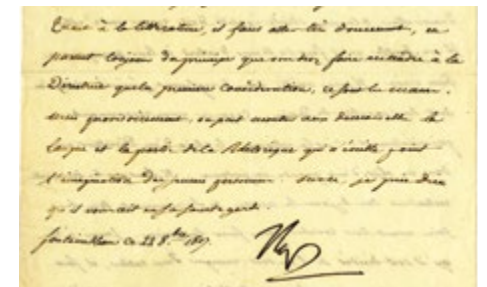 Quant à la littérature, il faut aller très doucement, en
partant toujours du principe que vous devez faire entendre à la
Directrice que la première considération, ce sont les mœurs.
, on peut montrer aux demoiselles la
langue et la partie de la Rhétorique qui n'éveille point
l'imagination des jeunes personnes. Sur ce, je prie Dieu
qu'il vous ait en sa sainte garde.
fontainebleau ce 23 8.bre 1807
Nap